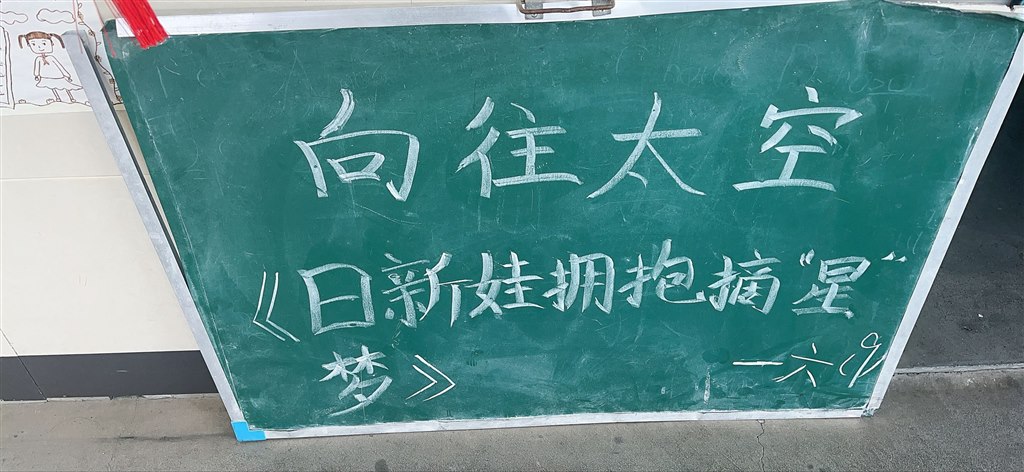 向往太空
《日新娃拥抱摘“星”
梦》
一六(9)